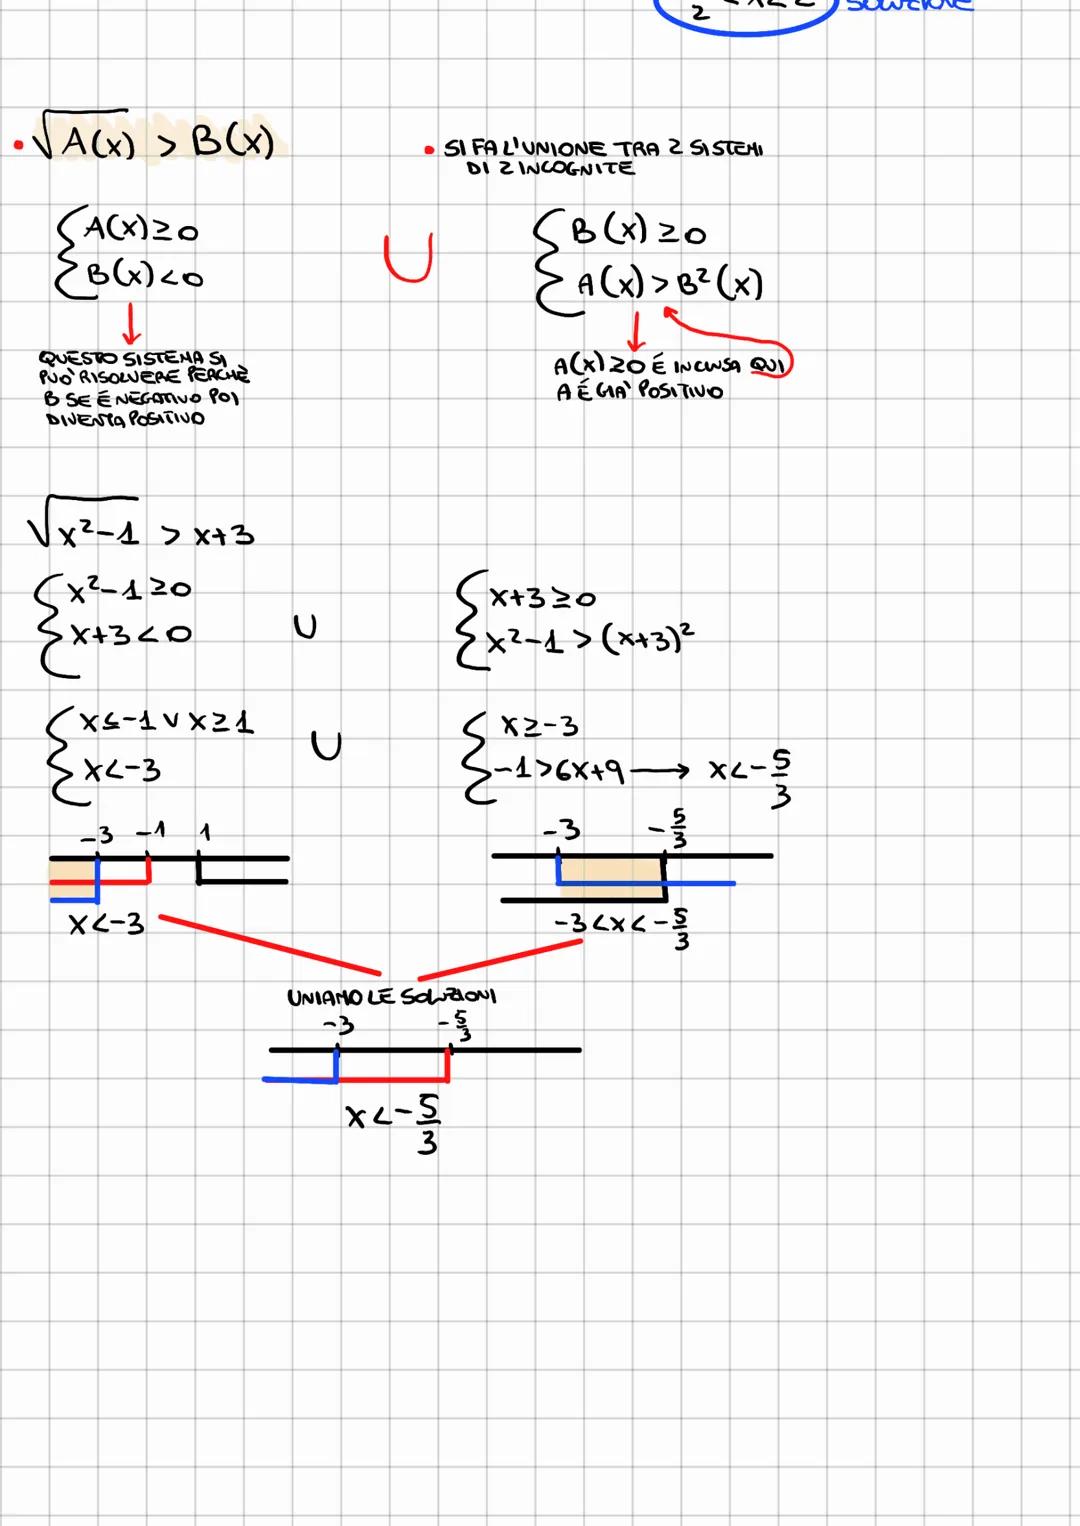 SOLUZIONE
• √A(x) > B(x)
• SI FA L'UNIONE TRA 2 SISTEMI
DI 2 INCOGNITE
{ A(x) ≥ 0
B(x) < 0
U
{ B(x) ≥ 0
A(x) > B²(x)
QUESTO SISTEMA SI
PUO' RISOLVERE PERCHÈ
B SE É NEGATIVO POI
DIVENTA POSITIVO
A(x) ≥ 0 É INCLUSA QUI
A É GIA' POSITIVO
√x²-1 > x+3
{ x²-1 ≥ 0
x+3 < 0
U
{ x+3 ≥ 0
x²-1 > (x+3)²
{ x ≤ -1 V x ≥ 1
x < -3
U
{ x ≥ -3
-1 > 6x+9 → x < -5/3
-3 -1 1
x < -3
-3 -5/3
-3 < x < -5/3
UNIAMO LE SOLUZIONI
-3 -5/3
x < -5/3